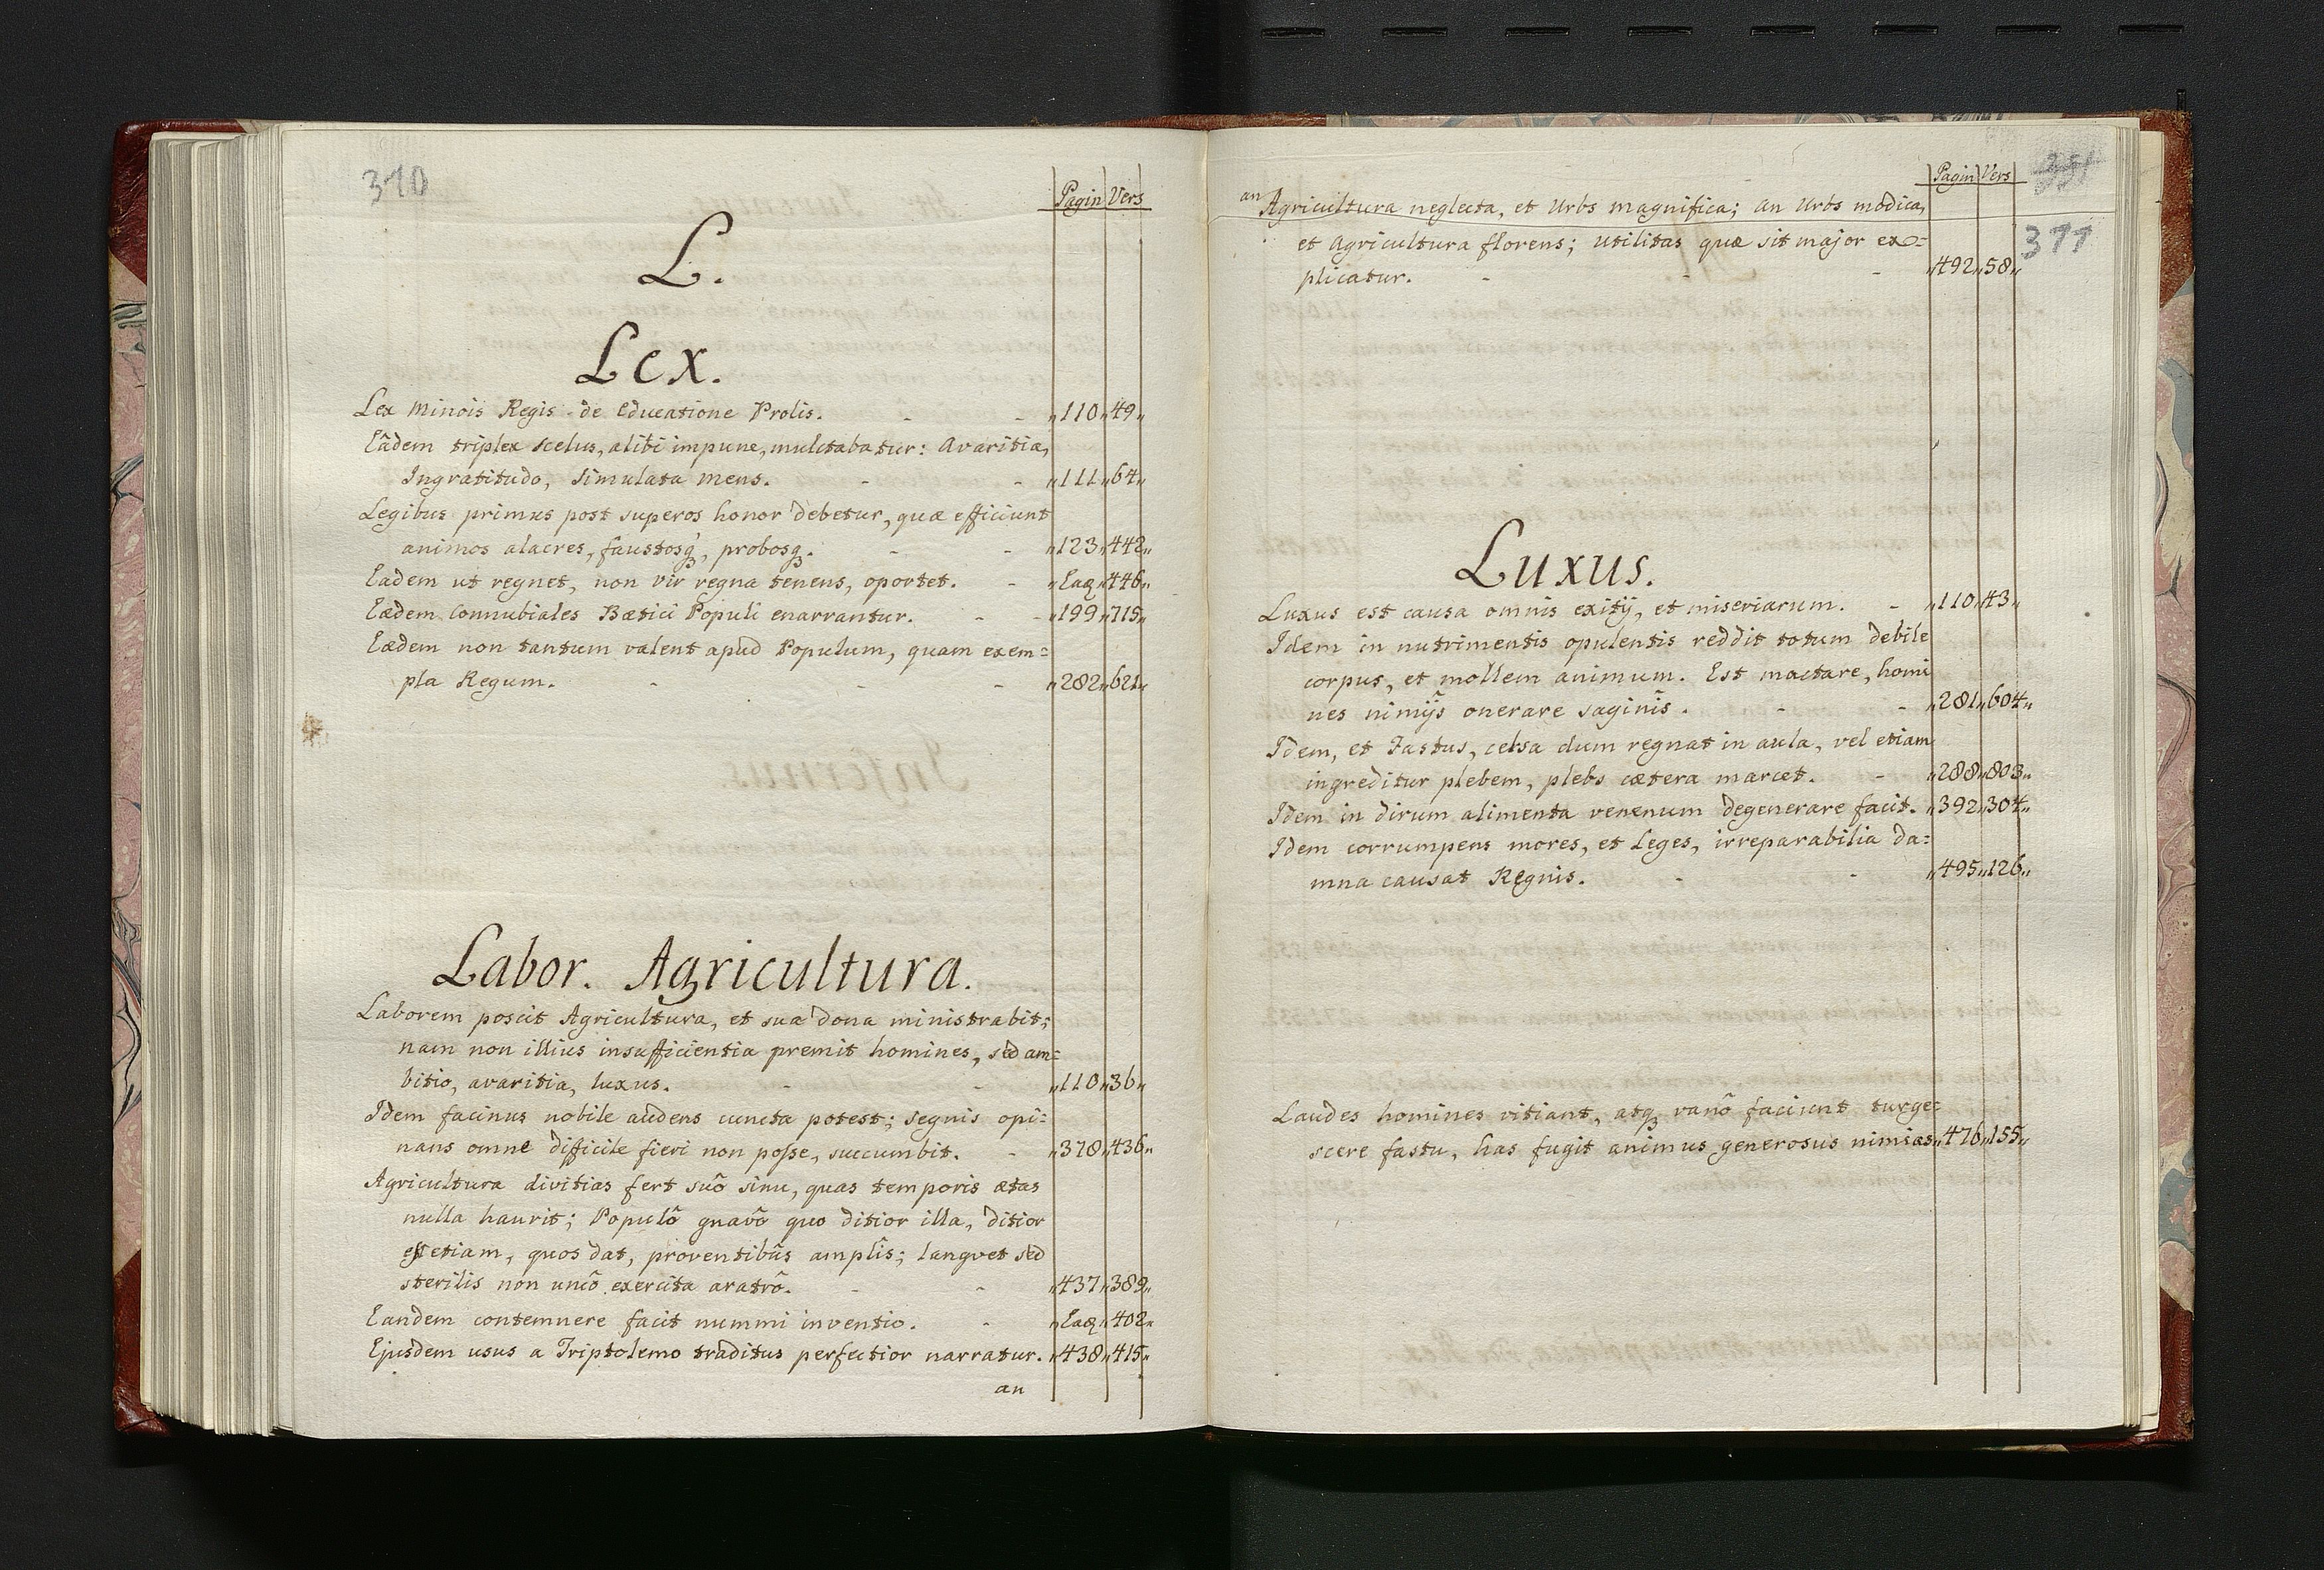 310
Pagin Vers
L.
Lex.
Lex Minois Regis de Educatione Prolis. - - „110„49„
Eâdem triplex scelus, alibi impune, mulctabatur: Avaritia,
Ingratitudo, simulata mens. - - „111„64„
Legibus primus post superos honor debetur, quæ efficiunt
animos alacres, faustosq́, probosq. - - „123„442„
Eadem ut regnet, non vir regna tenens, oportet. - „Eaq„446„
Eædem Connubiales Bætici Populi enarrantur. - - „199„715„
Eædem non tantum valent apud Populum, quam exem=
pla Regum. - - - „282„621„
Labor. Agricultura.
Laborem poscit Agricultura, et sua dona ministrabit;
nam non illius insufficientia premit homines, sed am=
bitio, avaritia, luxus. - - „110„36„
Idem facinus nobile audens cuncta potest; segnis opi=
nans omne difficile fieri non posse, succumbit. - „378„436„
Agricultura divitias fert suô sinu, quas temporis ætas
nulla haurit; Populô gnavô quo ditior illa, ditior
est etiam, quos dat, proventibûs amplîs; langvet sed
sterilis non uncô exercita aratrô. - - „437„389„
Eandem contemnere facit nummi inventio. - „Eaq„402„
Ejusdem usus a Triptolemo traditus perfectior narratur. „438„415„
an
Pagin Vers
311
an Agricultura neglecta, et Urbs magnifica; an Urbs modica,
et Agricultura florens; utilitas quæ sit major ex=
plicatur. - - - „492„58„
Luxus.
Luxus est causa omnis exitij, et miseriarum. - „110„43„
Idem in nutrimentis opulentis reddit totum debile
corpus, et mollem animum. Est mactare, homi
nes nimijs onerare saginîs. - - „281„604„
Idem, et Fastus, celsa dum regnat in aula, vel etiam
ingreditur plebem, plebs cætera marcet. - „288„803„
Idem in dirum alimenta venenum degenerare facit. „392„304„
Idem corrumpens mores, et Leges, irreparabilia da=
mna causat Regnis. - - „495„126„
Laudes homines vitiant, atq vanô faciunt turge=
scere fastu, has fugit animus generosus nimias „476„155„